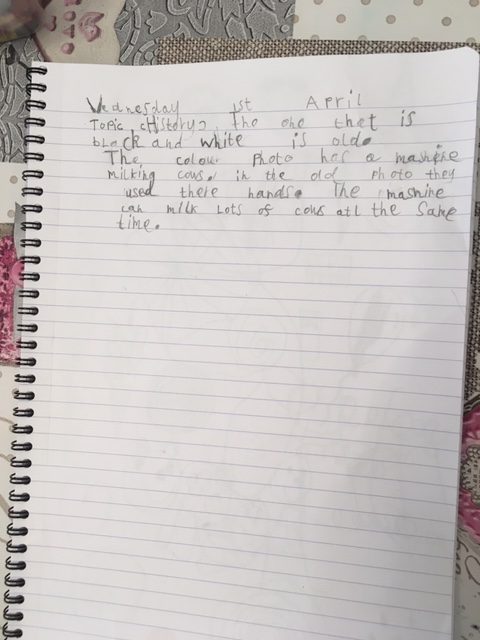 Wednesday 1st April
Topic (History). The one thet is
black and white is old.
The colour Photo has a mashine
milking cows. in the old Photo they
used there hands. The mashine
can milk Lots of cows atl the Same
time.